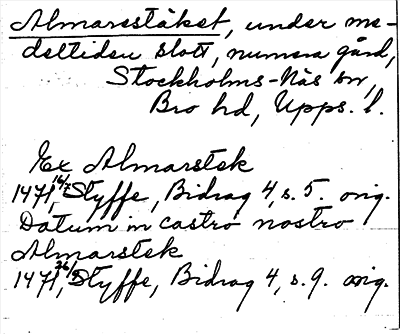 Almarestäket, under me-
deltiden slott, numera gård,
Stockholms-Näs sn,
Bro hd, Upps. l.
Ex Almarstek
1471 16/7, Styffe, Bidrag 4, s. 5. orig.
Datum in castro nostro
Almarstek
1471 26/7, Styffe, Bidrag 4, s. 9. orig.